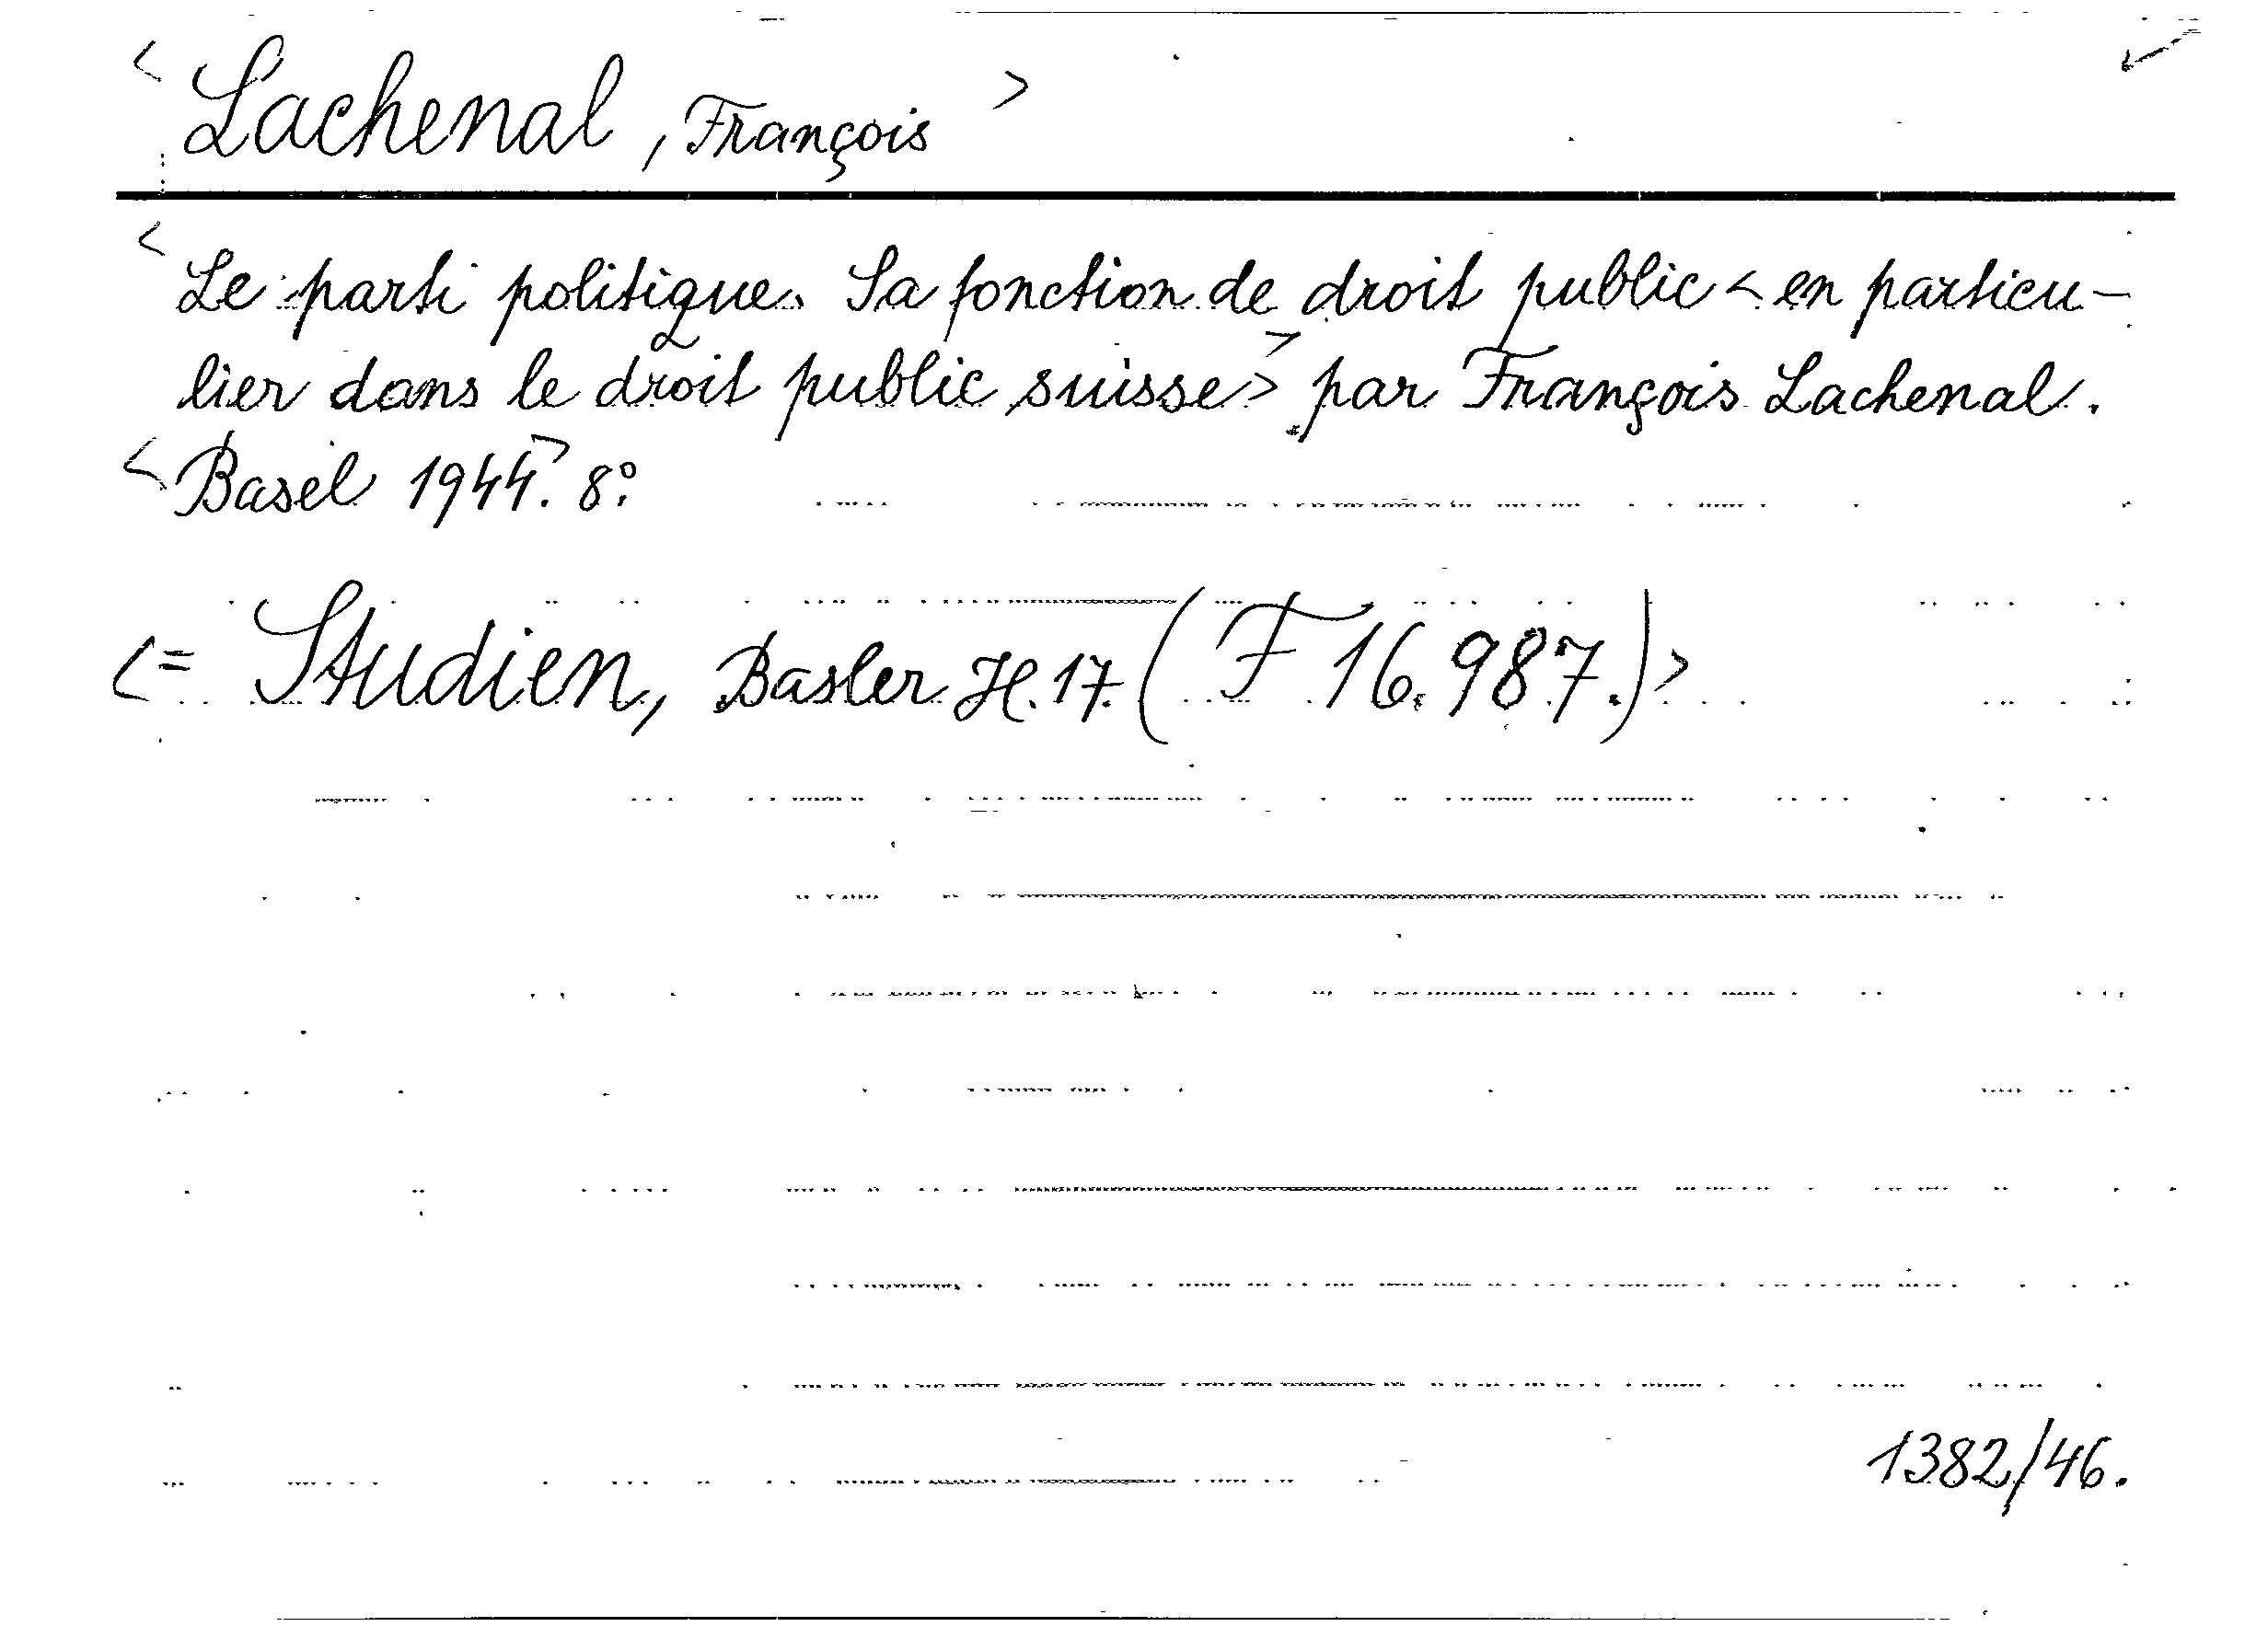 < Lachenal, François >
< Le parti politique. Sa fonction de droit public < en particu-
lier dans le droit public suisse > > par François Lachenal.
< Basel 1944 >. 8°.
<= Studien, Basler H. 17. (F 16.987.) >
1382/46.